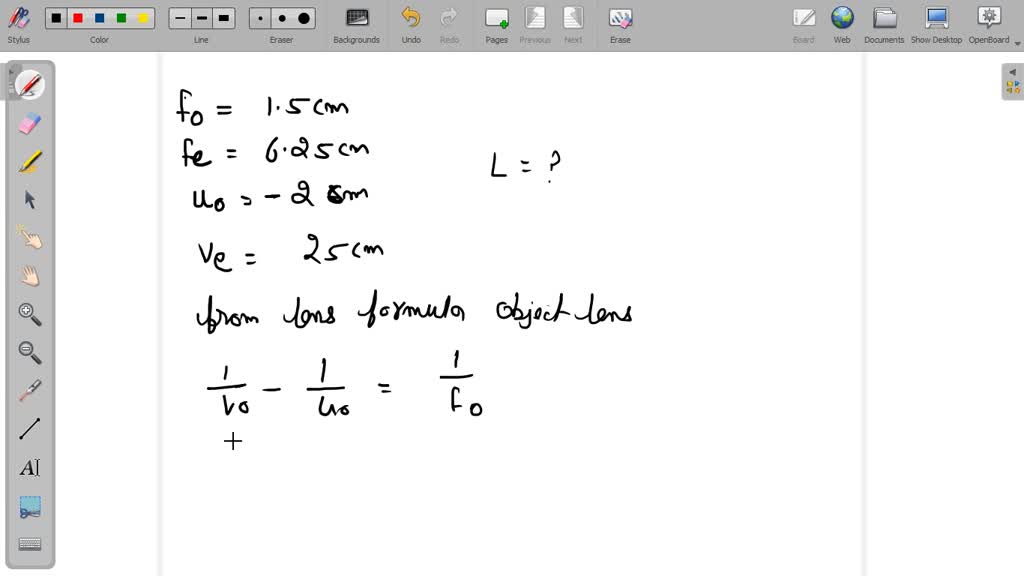 Stylus Color Line Eraser Backgrounds Undo Redo Pages Previous Next Erase Board Web Documents Show Desktop OpenBoard
f₀ = 1.5 cm
fe = 6.25 cm
L = ?
u₀ = - 2 cm
Ve = 25 cm
from lens formula object lens
1/V₀ - 1/u₀ = 1/f₀
AI